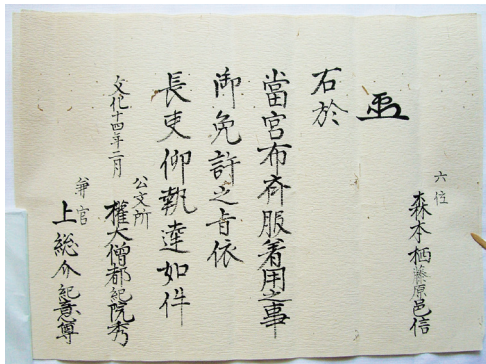 六位
森本栖藤原邑信
石於
當宮布斉服着用之事
御免許之旨依
長吏仰執達如件
文化十四年二月
公文所
權大僧都紀院秀
爺官
上総介紀意尊